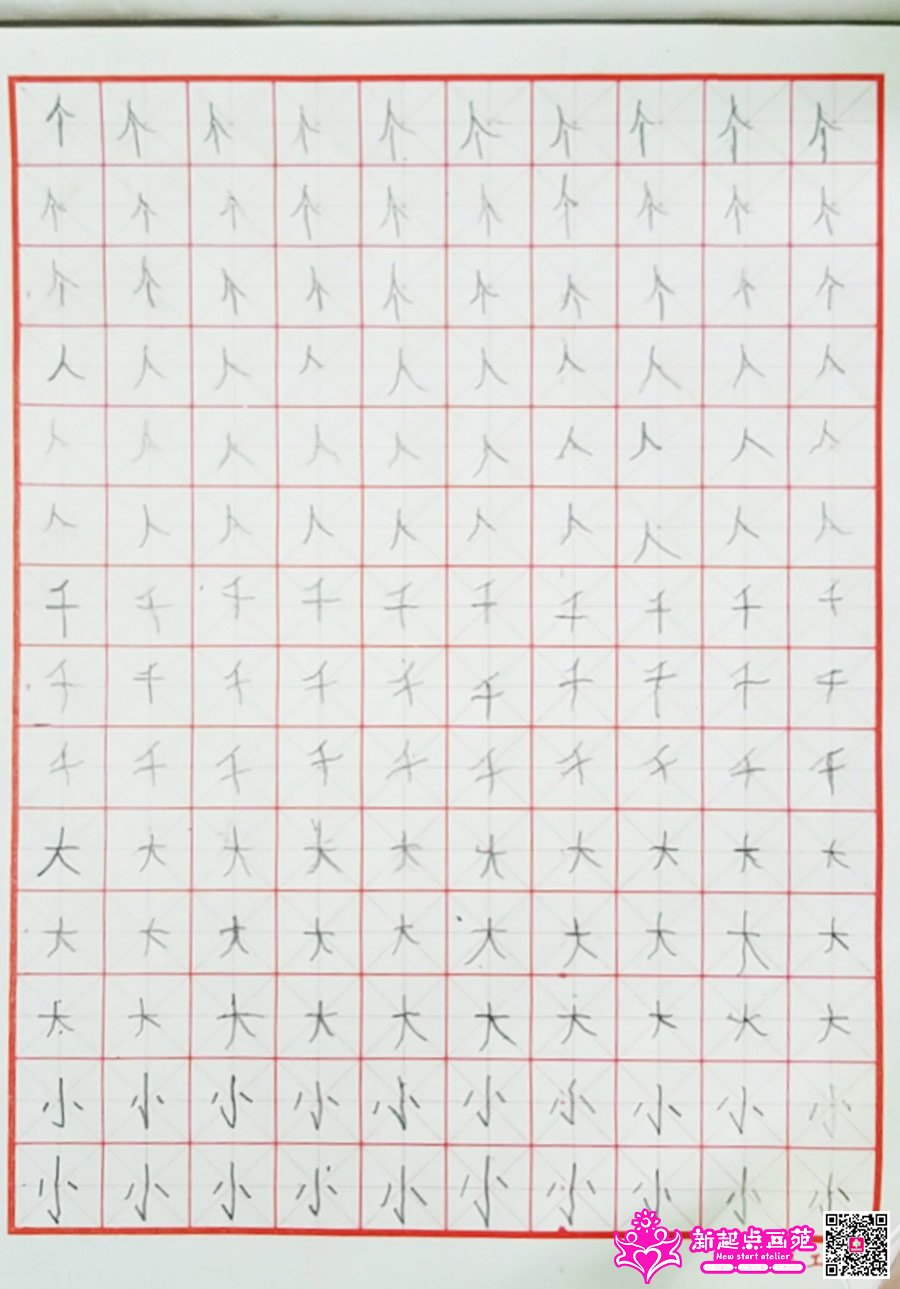 个个个个个个个个个个
个个个个个个个个个个
个个个个个个个个个个
人人人人人人人人人人
人人人人人人人人人人
人人人人人人人人人人
千千千千千千千千千千
千千千千千千千千千千
千千千千千千千千千千
大大大大大大大大大大
大大大大大大大大大大
大大大大大大大大大大
小小小小小小小小小小
小小小小小小小小小小
新起点画苑
New start atelier